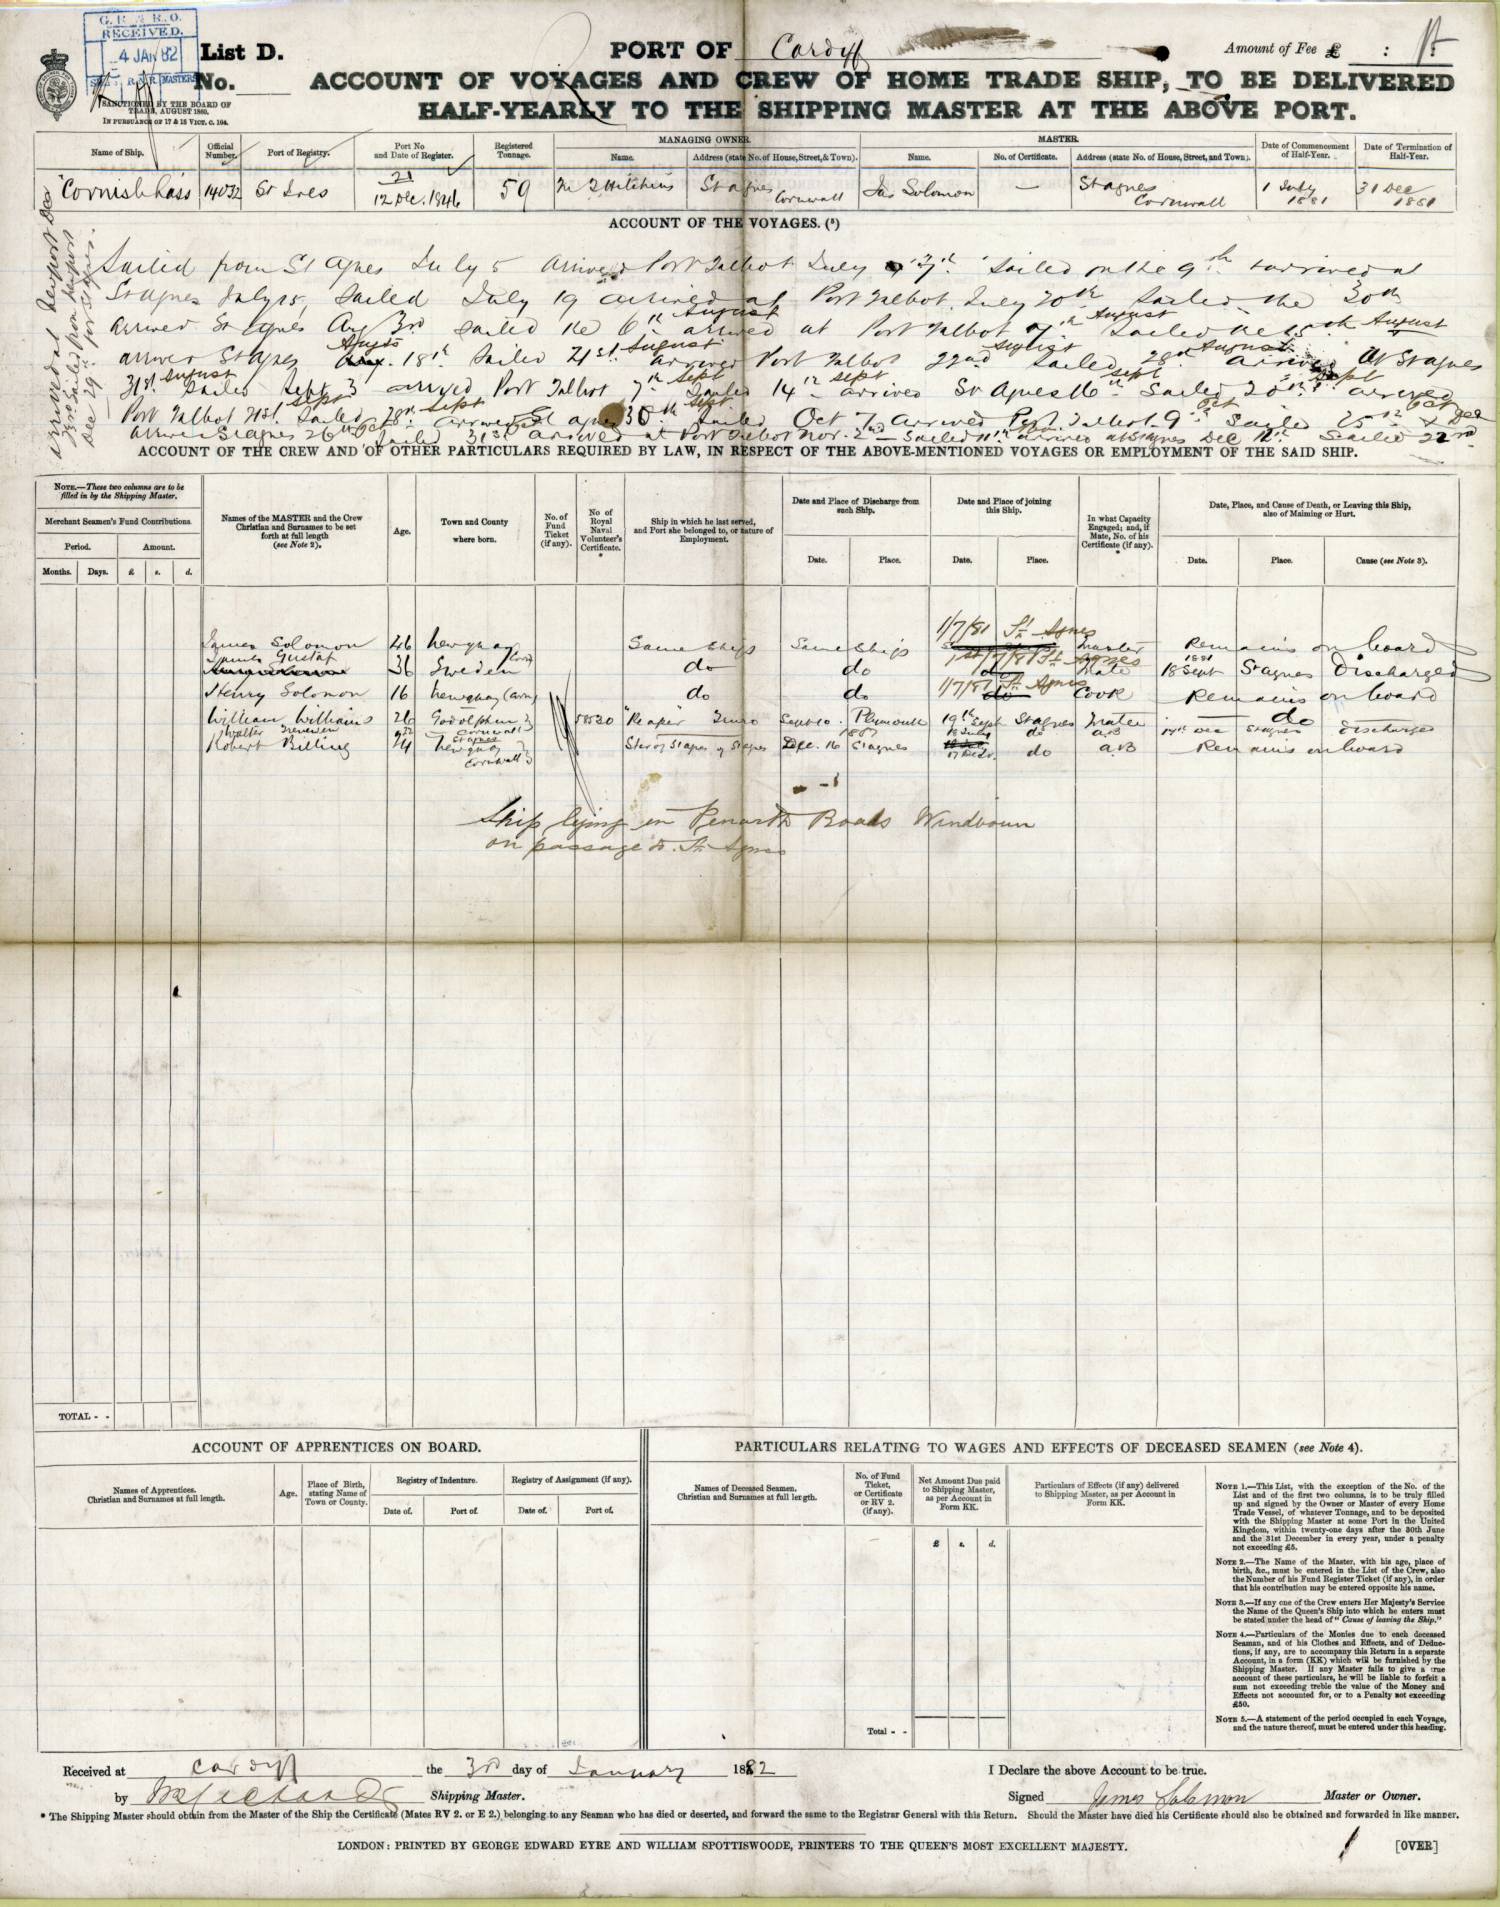 G. R. & R. O.
RECEIVED.
4 JAN 82
List D.
No.
SANCTIONED BY THE BOARD OF
TRADE, AUGUST 1860.
IN PURSUANCE OF 17 & 18 VICT. C. 104.
PORT OF Cardiff
Amount of Fee £ :
ACCOUNT OF VOYAGES AND CREW OF HOME TRADE SHIP, TO BE DELIVERED
HALF-YEARLY TO THE SHIPPING MASTER AT THE ABOVE PORT.
Name of Ship. Official Number. Port of Registry. Port No and Date of Register. Registered Tonnage. MANAGING OWNER. Name. Address (state No. of House, Street, & Town). MASTER. Name. No. of Certificate. Address (state No. of House, Street, and Town). Date of Commencement of Half-Year. Date of Termination of Half-Year.
"Cornish Lass 14032 St Ives 21 12 Dec. 1846 59 Hitchins St Agnes Cornwall Jas Solomon — St Agnes Cornwall 1 July 1881 31 Dec 1881
ACCOUNT OF THE VOYAGES. (5)
Sailed from St Agnes July 5 arrived Port Talbot July 7th Sailed on the 9th & arrived at
St Agnes July 15, Sailed July 19 arrived at Port Talbot July 20th Sailed the 30th
arrived St Agnes Aug 3rd Sailed the 6th August arrived at Port Talbot 7th August Sailed August
arrived St Agnes August 18th Sailed 21st August arrived Port Talbot 22nd August Sailed 28th August arrived at St Agnes
31st August Sailed Sept 3 arrived Port Talbot 7th Sept Sailed 14th Sept arrived St Agnes 16th Sept Sailed 20th Sept arrived
Port Talbot 21st Sept Sailed 28th Sept arrived St Agnes 30th Sept Sailed Oct 7 arrived Port Talbot 9th Oct Sailed 25th Oct
arrived St Agnes 26th Oct Sailed 31st arrived at Port Talbot Nov. 2nd — Sailed 11th arrived at St Agnes Dec 12th Sailed 22nd Dec
arrived at Newport Dec
Sailed from Newport
Dec 29th for St Agnes.
ACCOUNT OF THE CREW AND OF OTHER PARTICULARS REQUIRED BY LAW, IN RESPECT OF THE ABOVE-MENTIONED VOYAGES OR EMPLOYMENT OF THE SAID SHIP.
NOTE.—These two columns are to be filled in by the Shipping Master.
Merchant Seamen's Fund Contributions.
Period. Amount.
Months. Days. £ s. d.
Names of the MASTER and the Crew Christian and Surnames to be set forth at full length (see Note 2).
Age.
Town and County where born.
No. of Fund Ticket (if any).
No of Royal Naval Volunteer's Certificate. *
Ship in which he last served, and Port she belonged to, or nature of Employment.
Date and Place of Discharge from such Ship. Date. Place.
Date and Place of joining this Ship. Date. Place.
In what Capacity Engaged; and, if Mate, No. of his Certificate (if any). *
Date, Place, and Cause of Death, or Leaving this Ship, also of Maiming or Hurt. Date. Place. Cause (see Note 3).
James Solomon 46 Newquay Same Ship Same Ship 1/7/81 St Agnes Master Remains on board
James Gustaf 36 Sweden do do 1/7/81 St Agnes Mate 18 Sept 1881 St Agnes Discharged
Henry Solomon 16 Newquay Corn do do 1/7/81 St Agnes Cook Remains on board
William Williams 26 Godolphin Cornwall 58530 "Reaper" Truro Sept 10. Plymouth 19th Sept St Agnes Mate — do
Walter St Agnes do AB 17th Dec St Agnes Discharged
Robert Billing 24 Newquay Cornwall Star of St Agnes of St Agnes Dec. 16 1881 St Agnes 17 Dec. do AB Remains on board
Ship lying in Penarth Roads Windboun
on passage to St Agnes
TOTAL - -
ACCOUNT OF APPRENTICES ON BOARD.
Names of Apprentices. Christian and Surnames at full length.
Age.
Place of Birth, stating Name of Town or County.
Registry of Indenture. Date of. Port of.
Registry of Assignment (if any). Date of. Port of.
PARTICULARS RELATING TO WAGES AND EFFECTS OF DECEASED SEAMEN (see Note 4).
Names of Deceased Seamen. Christian and Surnames at full length.
No. of Fund Ticket, or Certificate or RV 2. (if any).
Net Amount Due paid to Shipping Master, as per Account in Form KK.
£ s. d.
Particulars of Effects (if any) delivered to Shipping Master, as per Account in Form KK.
Total - -
NOTE 1.—This List, with the exception of the No. of the
List and of the first two columns, is to be truly filled
up and signed by the Owner or Master of every Home
Trade Vessel, of whatever Tonnage, and to be deposited
with the Shipping Master at some Port in the United
Kingdom, within twenty-one days after the 30th June
and the 31st December in every year, under a penalty
not exceeding £5.
NOTE 2.—The Name of the Master, with his age, place of
birth, &c., must be entered in the List of the Crew, also
the Number of his Fund Register Ticket (if any), in order
that his contribution may be entered opposite his name.
NOTE 3.—If any one of the Crew enters Her Majesty's Service
the Name of the Queen's Ship into which he enters must
be stated under the head of "Cause of leaving the Ship."
NOTE 4.—Particulars of the Monies due to each deceased
Seaman, and of his Clothes and Effects, and of Deduc-
tions, if any, are to accompany this Return in a separate
Account, in a form (KK) which will be furnished by the
Shipping Master. If any Master fails to give a true
account of these particulars, he will be liable to forfeit a
sum not exceeding treble the value of the Money and
Effects not accounted for, or to a Penalty not exceeding
£50.
NOTE 5.—A statement of the period occupied in each Voyage,
and the nature thereof, must be entered under this heading.
Received at Cardiff the 3rd day of January 1882
by Shipping Master.
I Declare the above Account to be true.
Signed James Solomon Master or Owner.
* The Shipping Master should obtain from the Master of the Ship the Certificate (Mates RV 2. or E 2.) belonging to any Seaman who has died or deserted, and forward the same to the Registrar General with this Return. Should the Master have died his Certificate should also be obtained and forwarded in like manner.
LONDON: PRINTED BY GEORGE EDWARD EYRE AND WILLIAM SPOTTISWOODE, PRINTERS TO THE QUEEN'S MOST EXCELLENT MAJESTY.
[OVER]